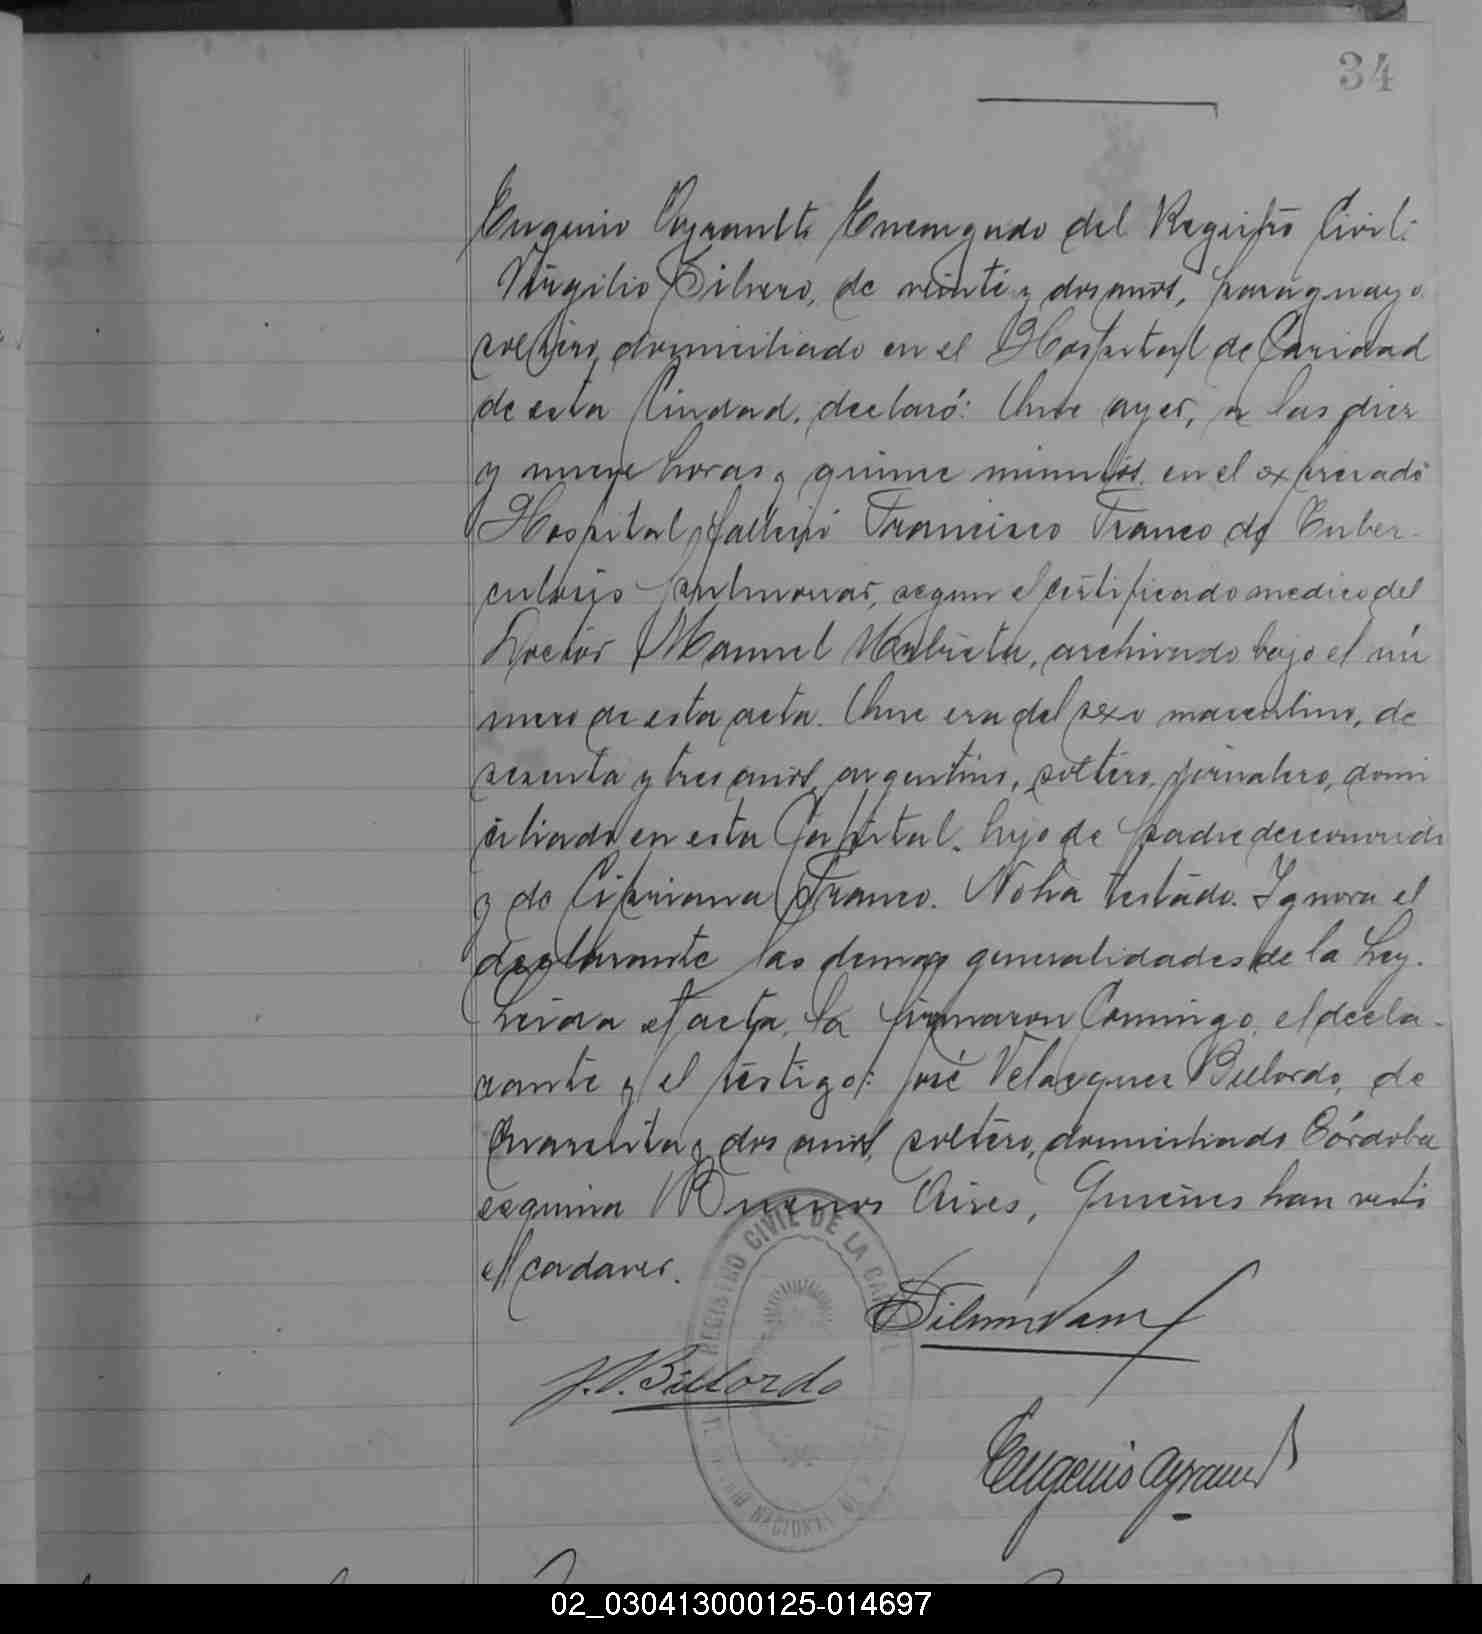 34
Eugenio Ayrault, Encargado del Registro Civil:
Virgilio Silvero, de veinte y dos años, paraguayo
soltero, domiciliado en el Hospital de Caridad
de esta Ciudad, declaró: Que ayer, a las diez
y nueve horas y quince minutos, en el expresado
Hospital falleció Francisco Franco de Tuber-
culosis pulmonar, segun el certificado medico del
Doctor Manuel Urbieta, archivado bajo el nú
mero de esta acta. Que era del sexo masculino, de
sesenta y tres años, argentino, soltero, jornalero, domi
ciliado en esta Capital, hijo de padre desconocido
y de Cipriana Franco. No ha testado. Ignora el
declarante las demas generalidades de la Ley.
Leida el acta, la firmaron Conmigo, el decla-
rante y el testigo: José Velazquez Bilordo, de
Cuarenta y dos años, soltero, domiciliado Córdoba
esquina Buenos Aires, Quienes han visto
el cadaver.
REGISTRO CIVIL DE LA CAPITAL
NACIONAL
J. V. Bilordo
Eugenio Ayrault
02_030413000125-014697